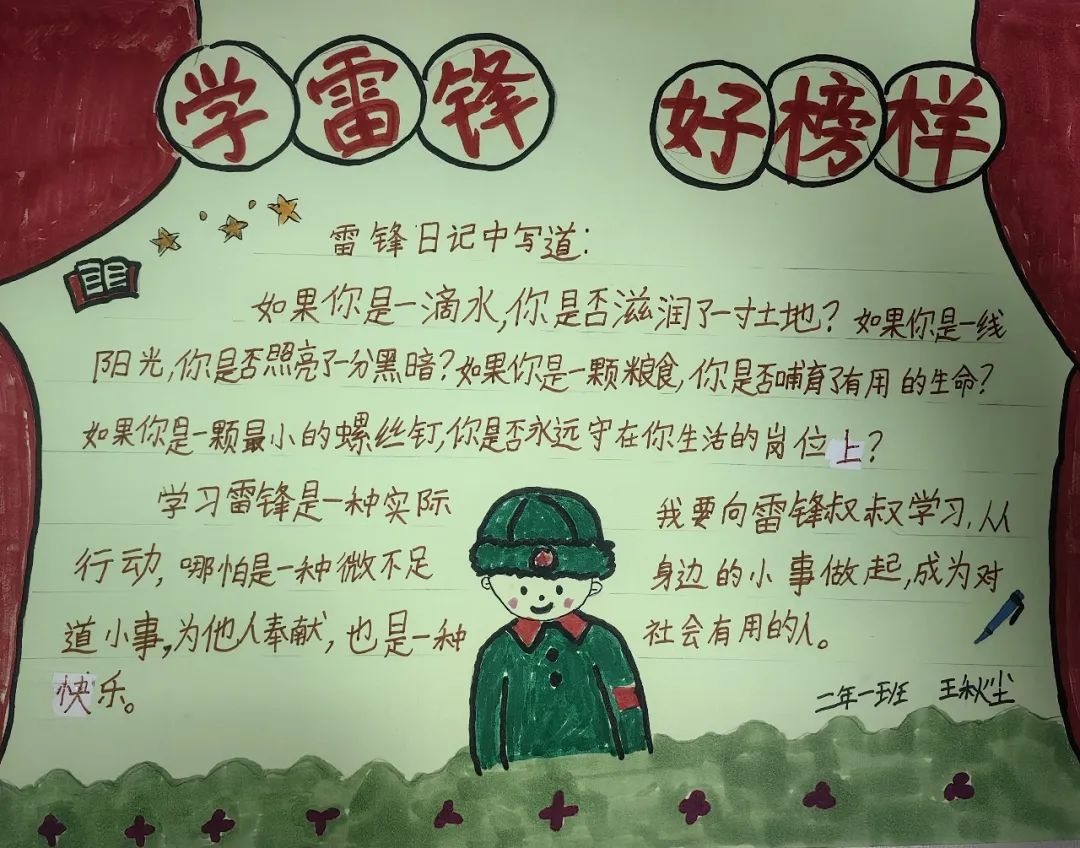 学雷锋 好榜样
雷锋日记中写道：
如果你是一滴水,你是否滋润了一寸土地？如果你是一线
阳光,你是否照亮了一分黑暗？如果你是一颗粮食,你是否哺育了有用的生命？
如果你是一颗最小的螺丝钉,你是否永远守在你生活的岗位上？
学习雷锋是一种实际
行动,哪怕是一种微不足
道小事,为他人奉献,也是一种
快乐。
我要向雷锋叔叔学习,从
身边的小事做起,成为对
社会有用的人。
二年一班 王秋尘